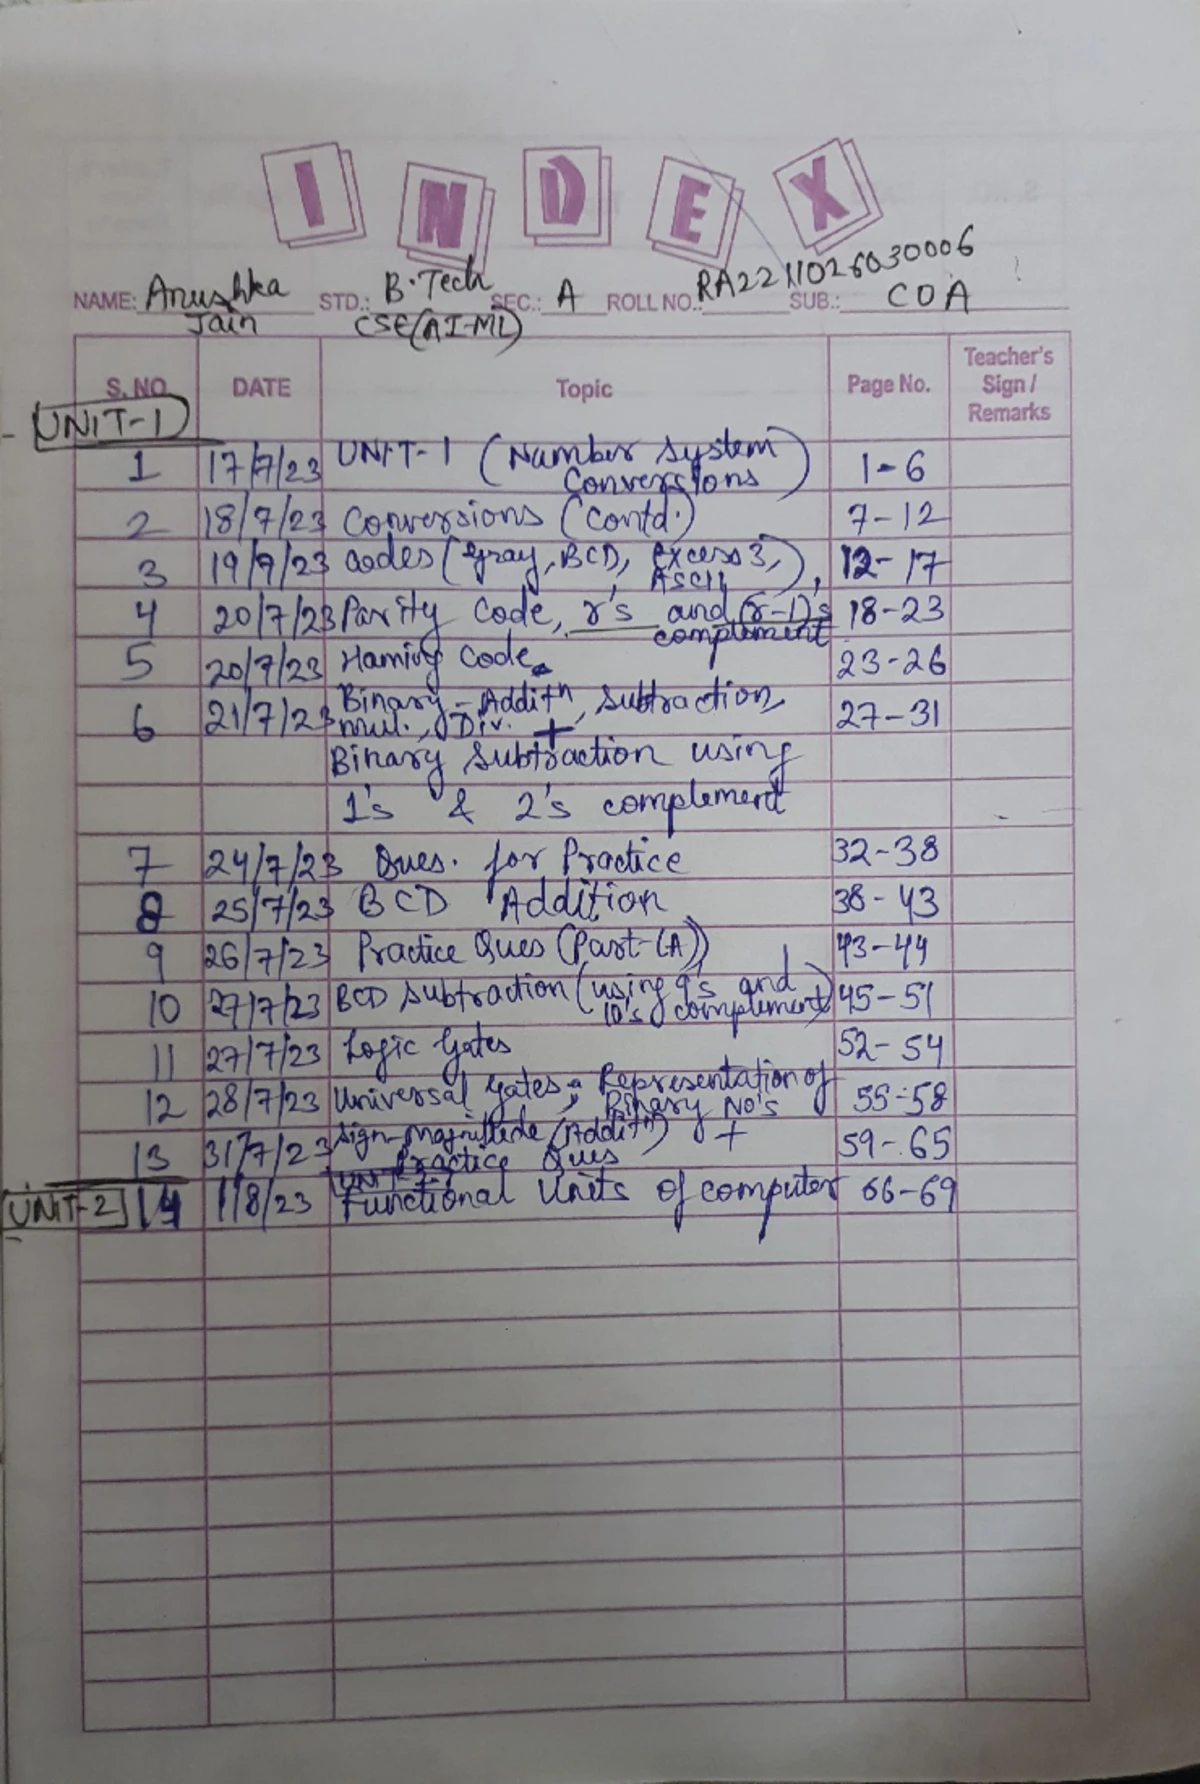 INDEX
NAME: Anushka Jain STD.: B.Tech CSE(AI-ML) SEC.: A ROLL NO.: RA2211026030006 SUB.: COA
S. NO. DATE Topic Page No. Teacher's Sign / Remarks
UNIT-1
1 17/7/23 UNIT-1 (Number System Conversions) 1-6
2 18/7/23 Conversions (Contd.) 7-12
3 19/7/23 Codes (Gray, BCD, Excess 3, ASCII), 12-17
4 20/7/23 Parity Code, r's and (r-1)'s complement 18-23
5 20/7/23 Haming Code 23-26
6 21/7/23 Binary - Addith, Subtraction, Mul., Div. + 27-31
Binary Subtraction using
1's & 2's complement
7 24/7/23 Ques. for Practice 32-38
8 25/7/23 BCD Addition 38-43
9 26/7/23 Practice Ques (Part-(A)) 43-44
10 27/7/23 BCD Subtraction (using 9's and 10's complement) 45-51
11 27/7/23 Logic Gates 52-54
12 28/7/23 Universal Gates, Representation of Binary No's 55-58
13 31/7/23 Sign-Magnitude (Addith) + Practice Ques 59-65
UNIT-2 14 1/8/23 Functional Units of computer 66-69